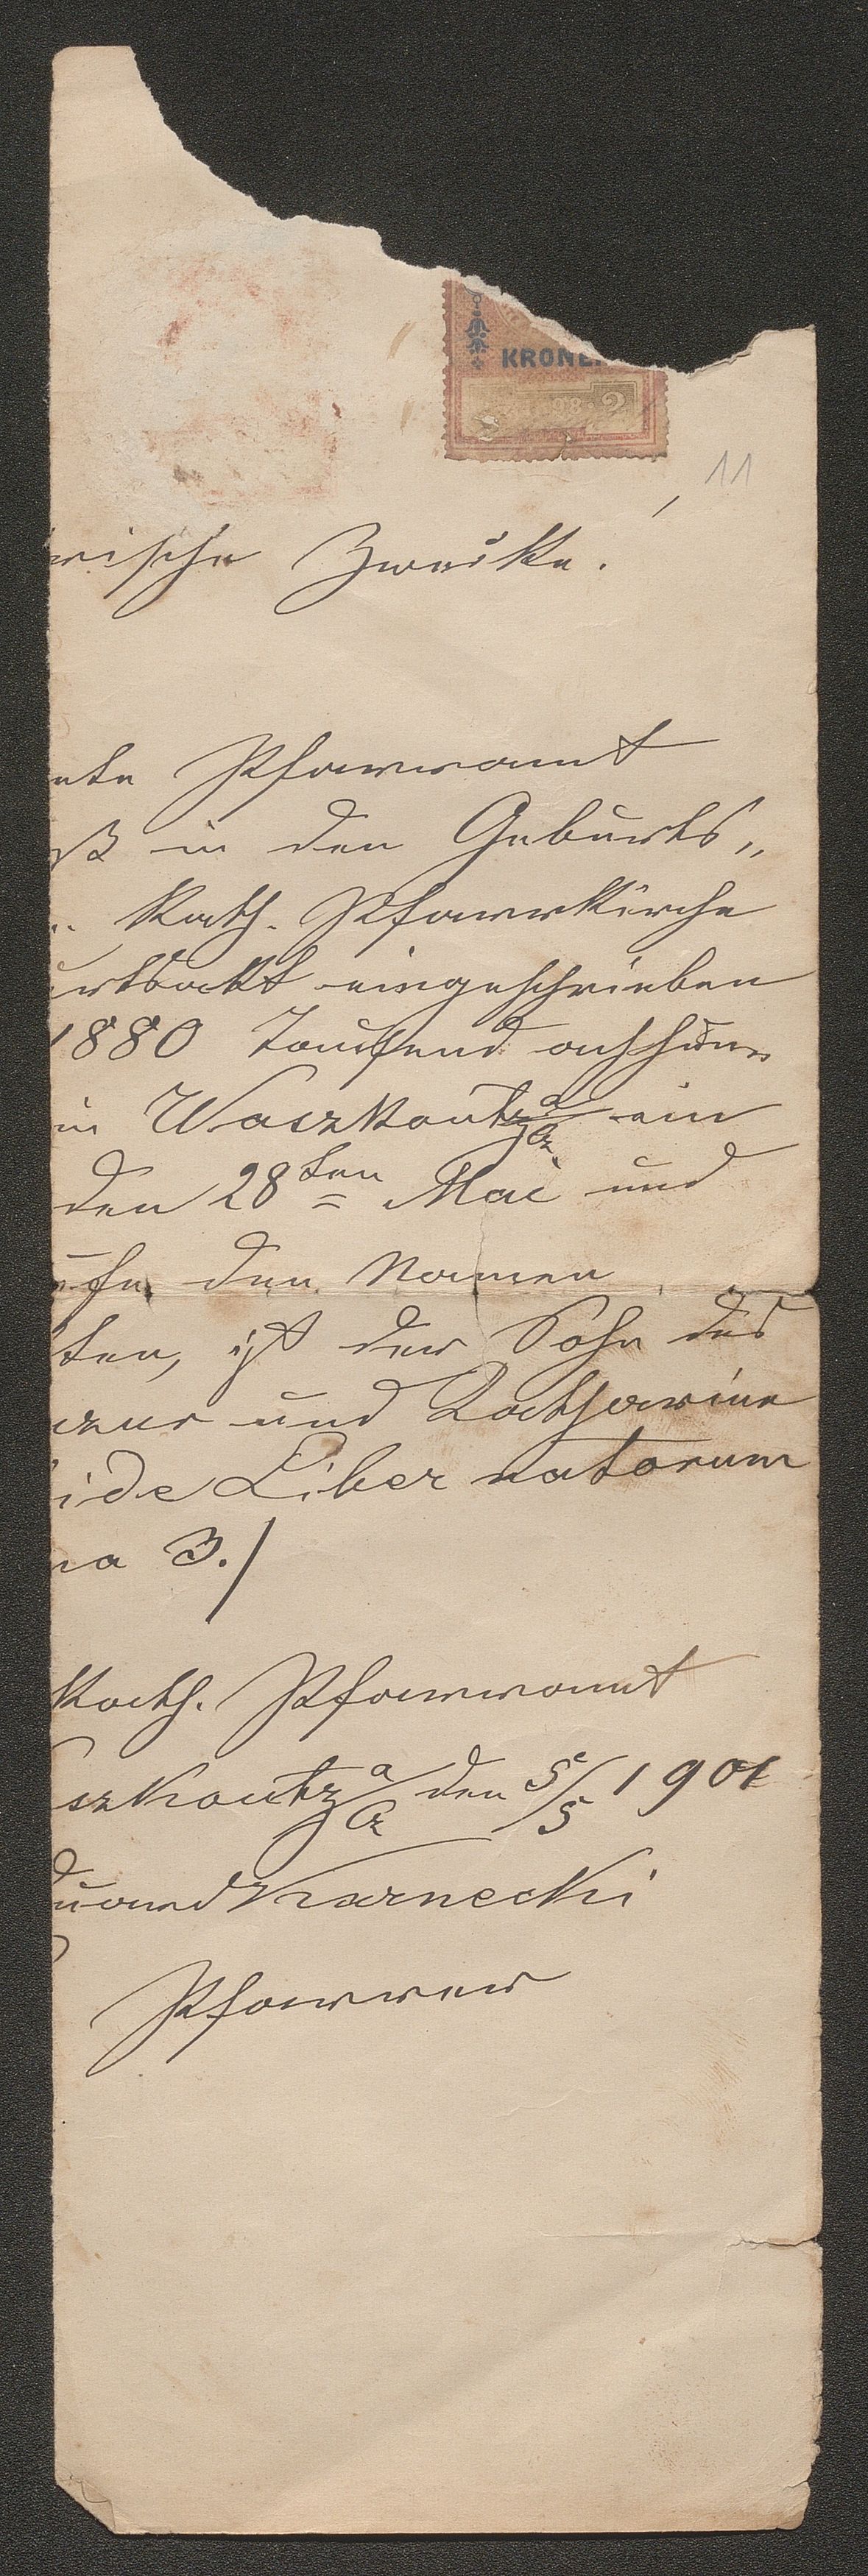 KRONE
98 2
11
rische Zwecke.
nte Pfarramt
ß in den Geburts„
. Kath. Pfarrkirche
urtsakt eingeschrieben
1880 Tausend achthun
in Waszkoutz a/Cz ein
den 28ten Mai und
ufe den Namen
ten, ist der Sohn des
und Katharina
ide Liber natorum
na 3./
Kath. Pfarramt
szkoutz a/Cz den 5/5 1901
duard Kxarnecki
Pfarrer